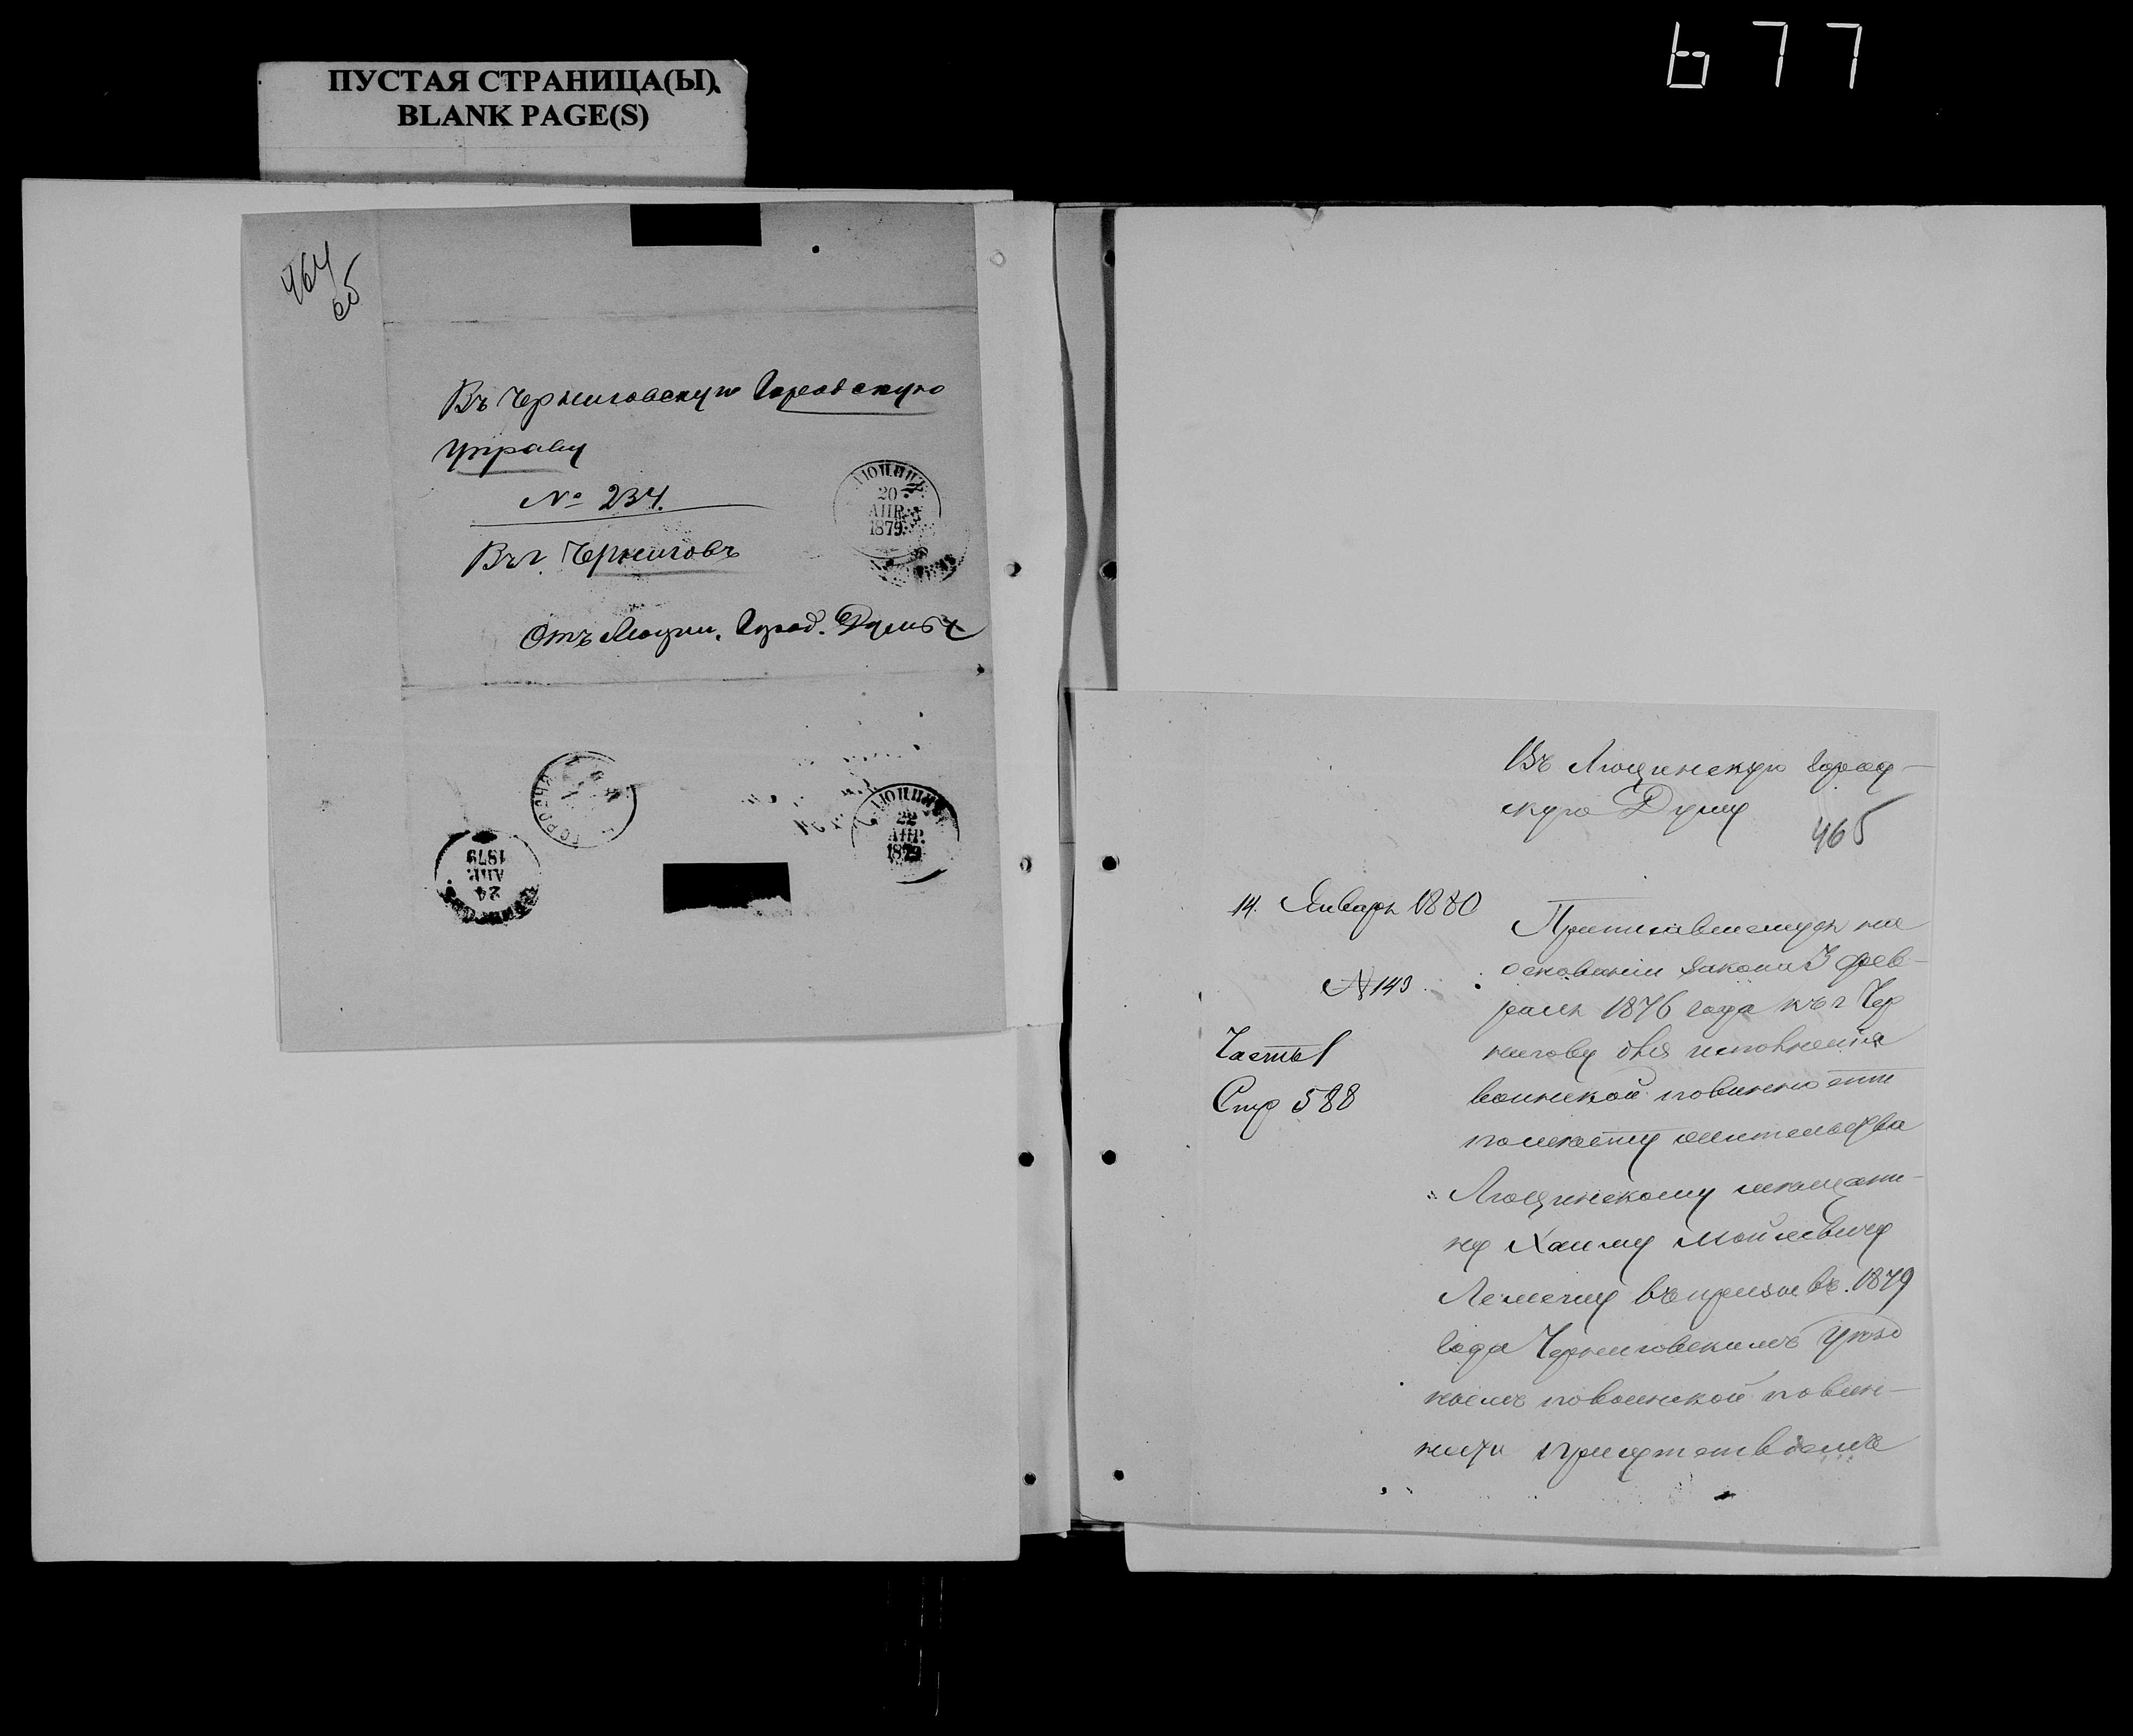 677
ПУСТАЯ СТРАНИЦА(Ы)
BLANK PAGE(S)
464
об
Въ Черниговскую Городскую
Управу
№ 234.
Въ г. Черниговъ
Отъ Люцин. Город. Думы
ЛЮЦИНЪ
20
АПР.
1879
ЛЮЦИНЪ
22
АПР.
1879
24
АПР.
1879
Въ Люцинскую Город-
скую Думу
465
14. Январь 1880
№ 143
Часть I
Стр 588
Приписавшемуся на
основании закона 3 фев-
раля 1876 года къ г Чер
нигову для исполнения
воинской повинности
по месту жительства
Люцинскому мещани-
ну Хаиму Мойсевичу
в призыве 1879
года Черниговскимъ Уезд
нымъ по воинской повин-
ности присутствиемъ